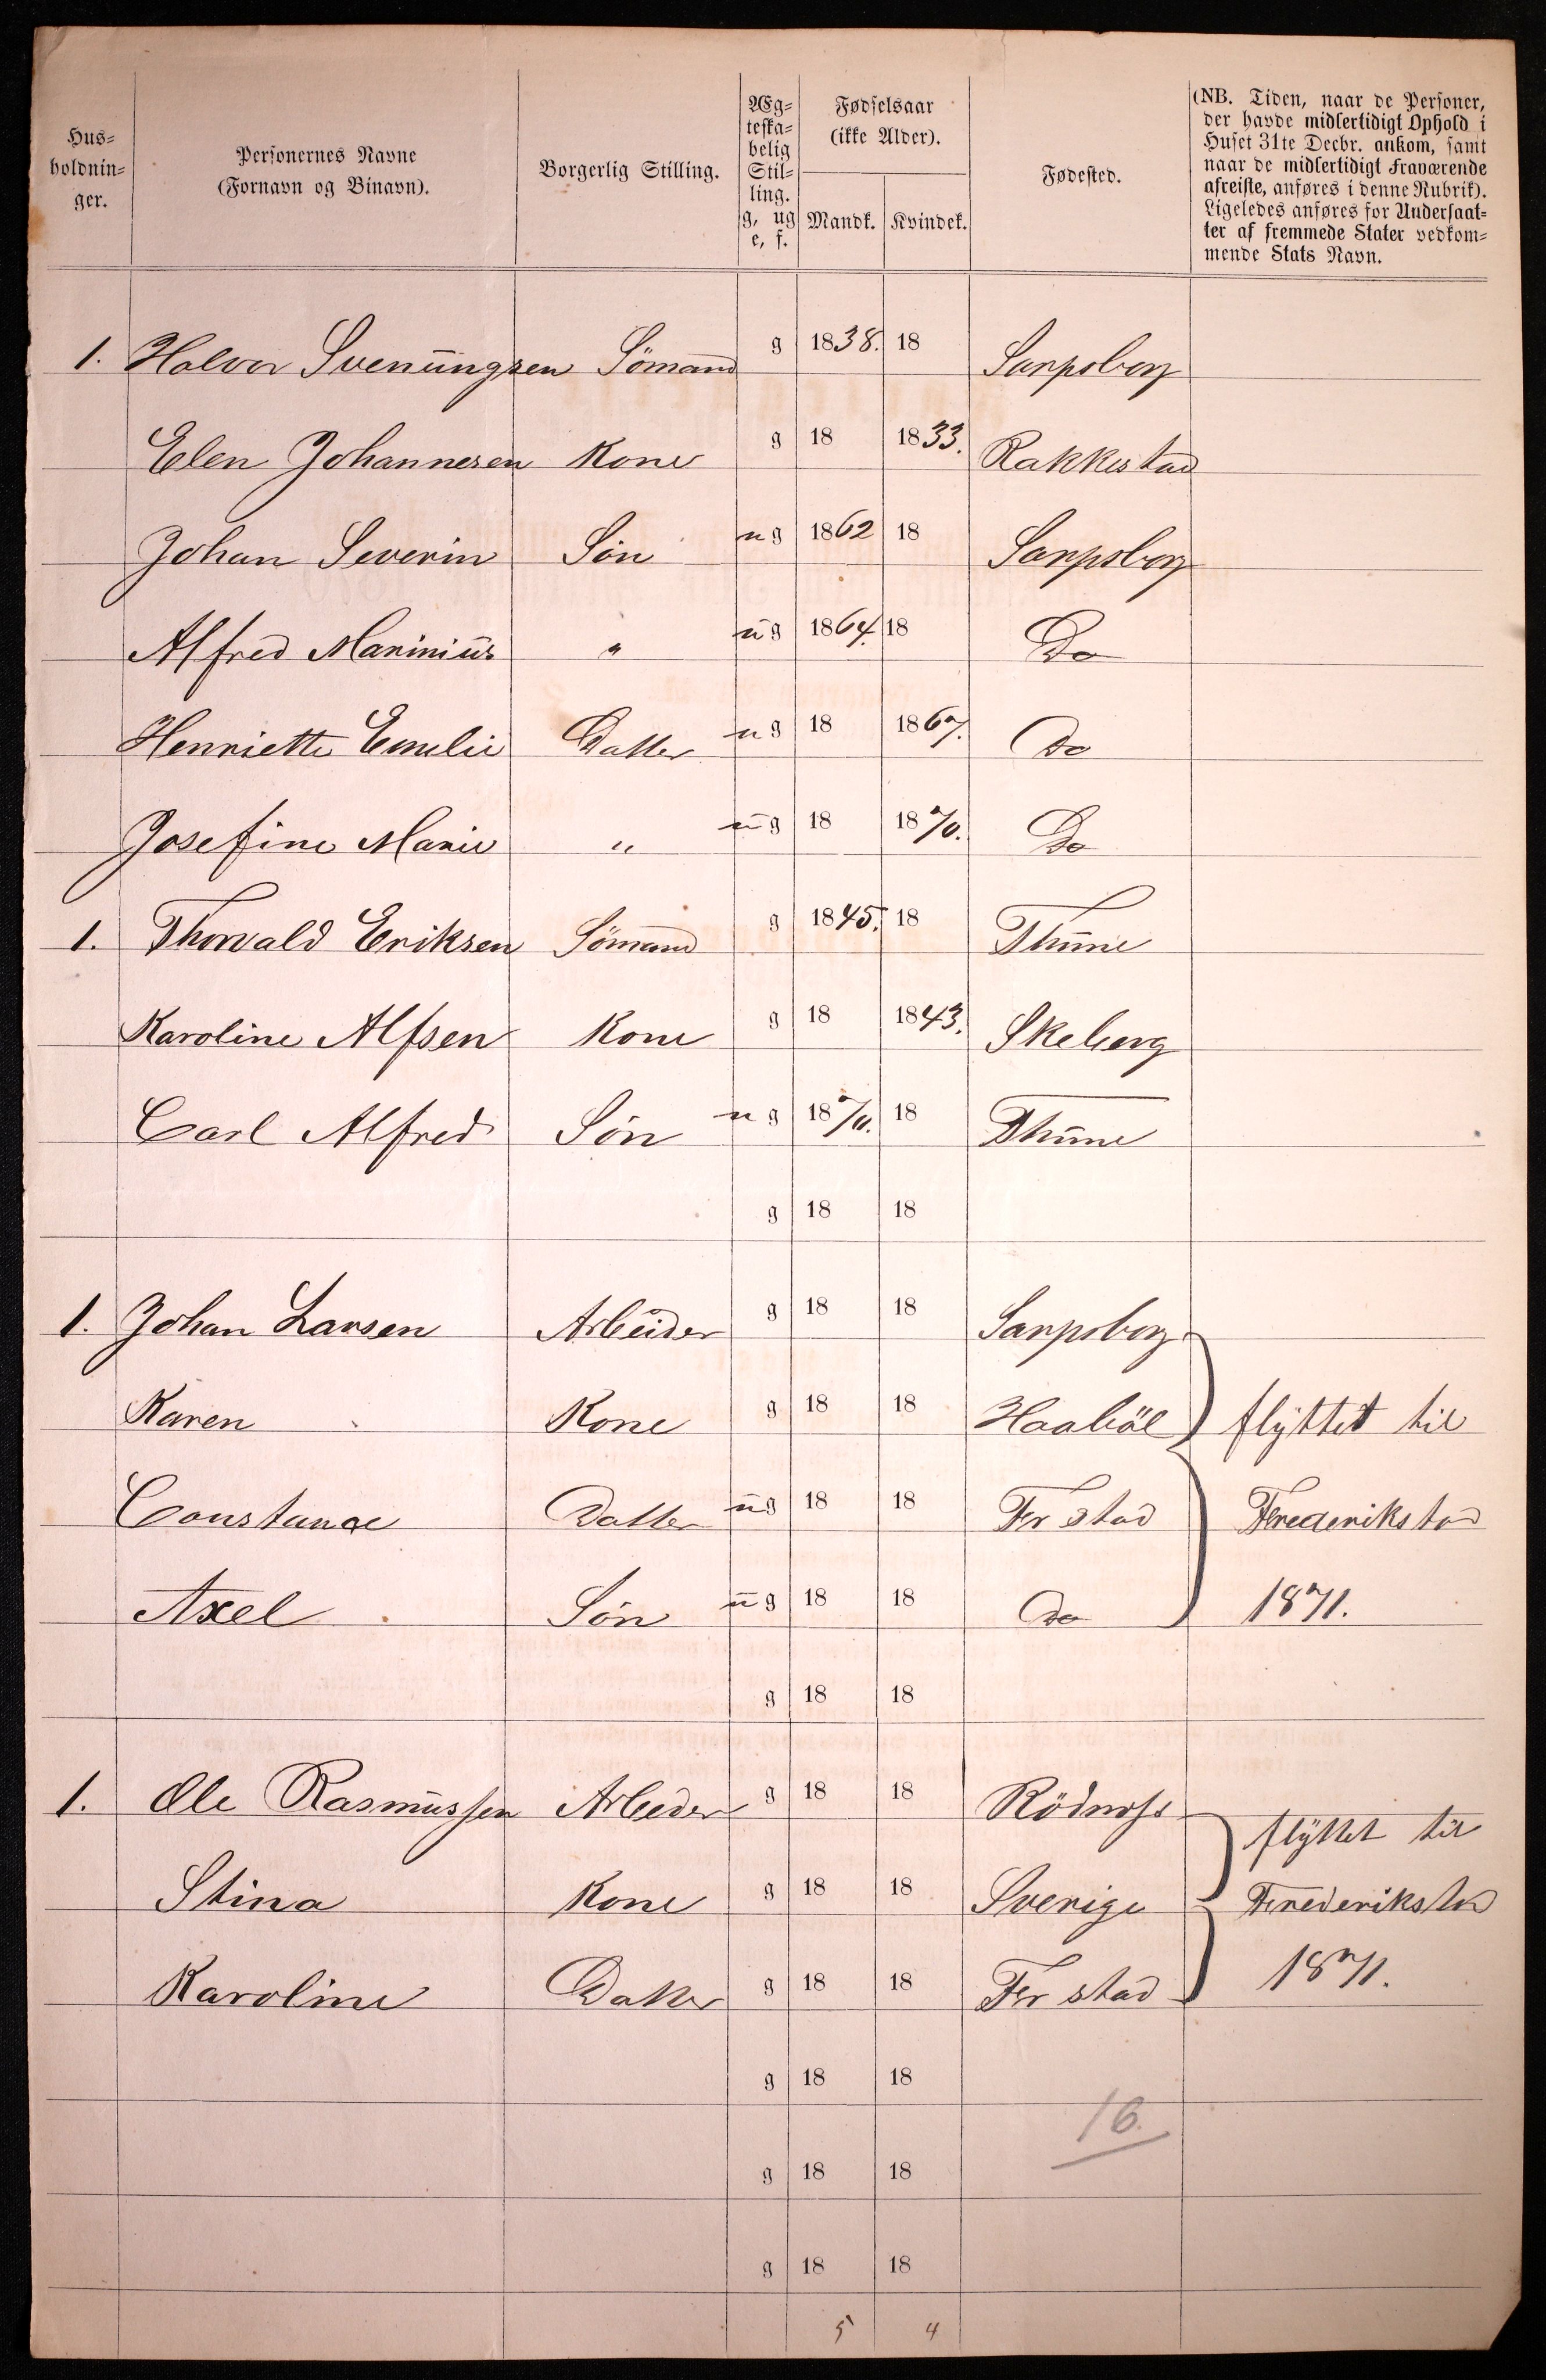 Hus-
holdnin-
ger.
Personernes Navne
(Fornavn og Binavn).
Borgerlig Stilling.
Æg-
teska-
belig
Stil-
ling.
g, ug
e, f.
Fødselsaar
(ikke Alder).
Mandk. Kvindek.
Fødested.
(NB. Tiden, naar de Personer,
der havde midlertidigt Ophold i
Huset 31te Decbr. ankom, samt
naar de midlertidigt Fraværende
afreiste, anføres i denne Rubrik).
Ligeledes anføres for Undersaat-
ter af fremmede Stater vedkom-
mende Stats Navn.
1. Halvor Svenūngsen Sömand g 1838. 18 Sarpsborg
Elen Johannesen Kone g 18 1833. Rakkestad
Johan Severin Sön ug 1862 18 Sarpsborg
Alfred Mariniūs " ūg 1864. 18 Do
Henriette Emelie Datter ug 18 1867. Do
Josefine Marie " ūg 18 1870. Do
1. Thorvald Eriksen Sömand g 1845. 18 Thūne
Karoline Alfsen Kone g 18 1843. Skeberg
Carl Alfred Sön ug 1870. 18 Thūne
g 18 18
1. Johan Larsen Arbeider g 18 18 Sarpsborg
Karen Kone g 18 18 Haaböl flyttet til
Constance Datter ūg 18 18 Fr stad Frederikstad
Axel Sön ūg 18 18 Do 1871.
g 18 18
1. Ole Rasmūssen Arbeider g 18 18 Rödnæss
flyttet til
Stina Kone g 18 18 Sverige Frederikstad
Karoline Datter g 18 18 Fr stad 1871.
g 18 18
16.
g 18 18
g 18 18
5 4